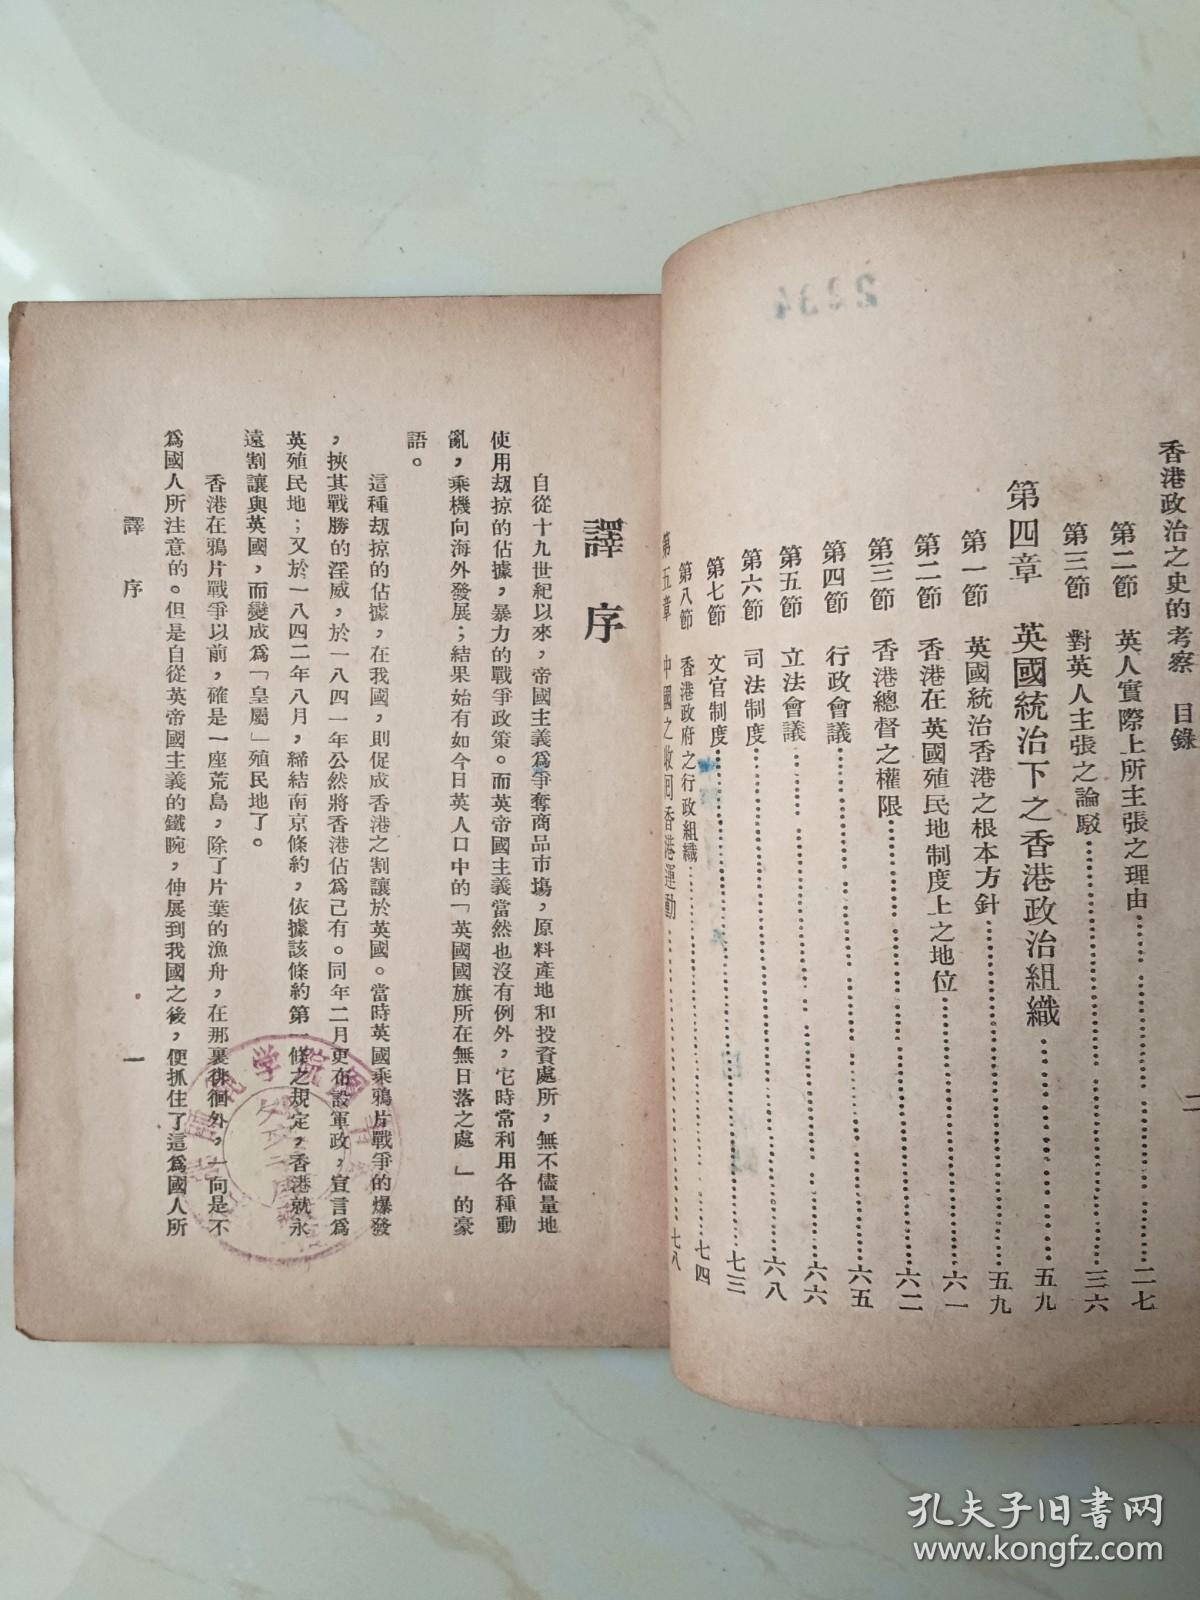 香港政治之史的考察　目錄
二
第二節　英人實際上所主張之理由……二七
第三節　對英人主張之論駁……三六
第四章　英國統治下之香港政治組織……五九
第一節　英國統治香港之根本方針……五九
第二節　香港在英國殖民地制度上之地位……六一
第三節　香港總督之權限……六二
第四節　行政會議……六五
第五節　立法會議……六六
第六節　司法制度……六八
第七節　文官制度……七三
第八節　香港政府之行政組織……七四
第五章　中國之收回香港運動……七八
2234
譯序
自從十九世紀以來，帝國主義爲爭奪商品市場，原料產地和投資處所，無不儘量地
使用刼掠的佔據，暴力的戰爭政策。而英帝國主義當然也沒有例外，它時常利用各種動
亂，乘機向海外發展；結果始有如今日英人口中的「英國國旗所在無日落之處」的豪
語。
這種刼掠的佔據，在我國，則促成香港之割讓於英國。當時英國乘鴉片戰爭的爆發
，挾其戰勝的淫威，於一八四一年公然將香港佔爲己有。同年二月更布設軍政，宣言爲
英殖民地；又於一八四二年八月，締結南京條約，依據該條約第一條之規定，香港就永
遠割讓與英國，而變成爲「皇屬」殖民地了。
香港在鴉片戰爭以前，確是一座荒島，除了片葉的漁舟，在那裏徘徊外，一向是不
爲國人所注意的。但是自從英帝國主義的鐵腕，伸展到我國之後，便抓住了這爲國人所
譯序
一
孔夫子旧书网
www.kongfz.com